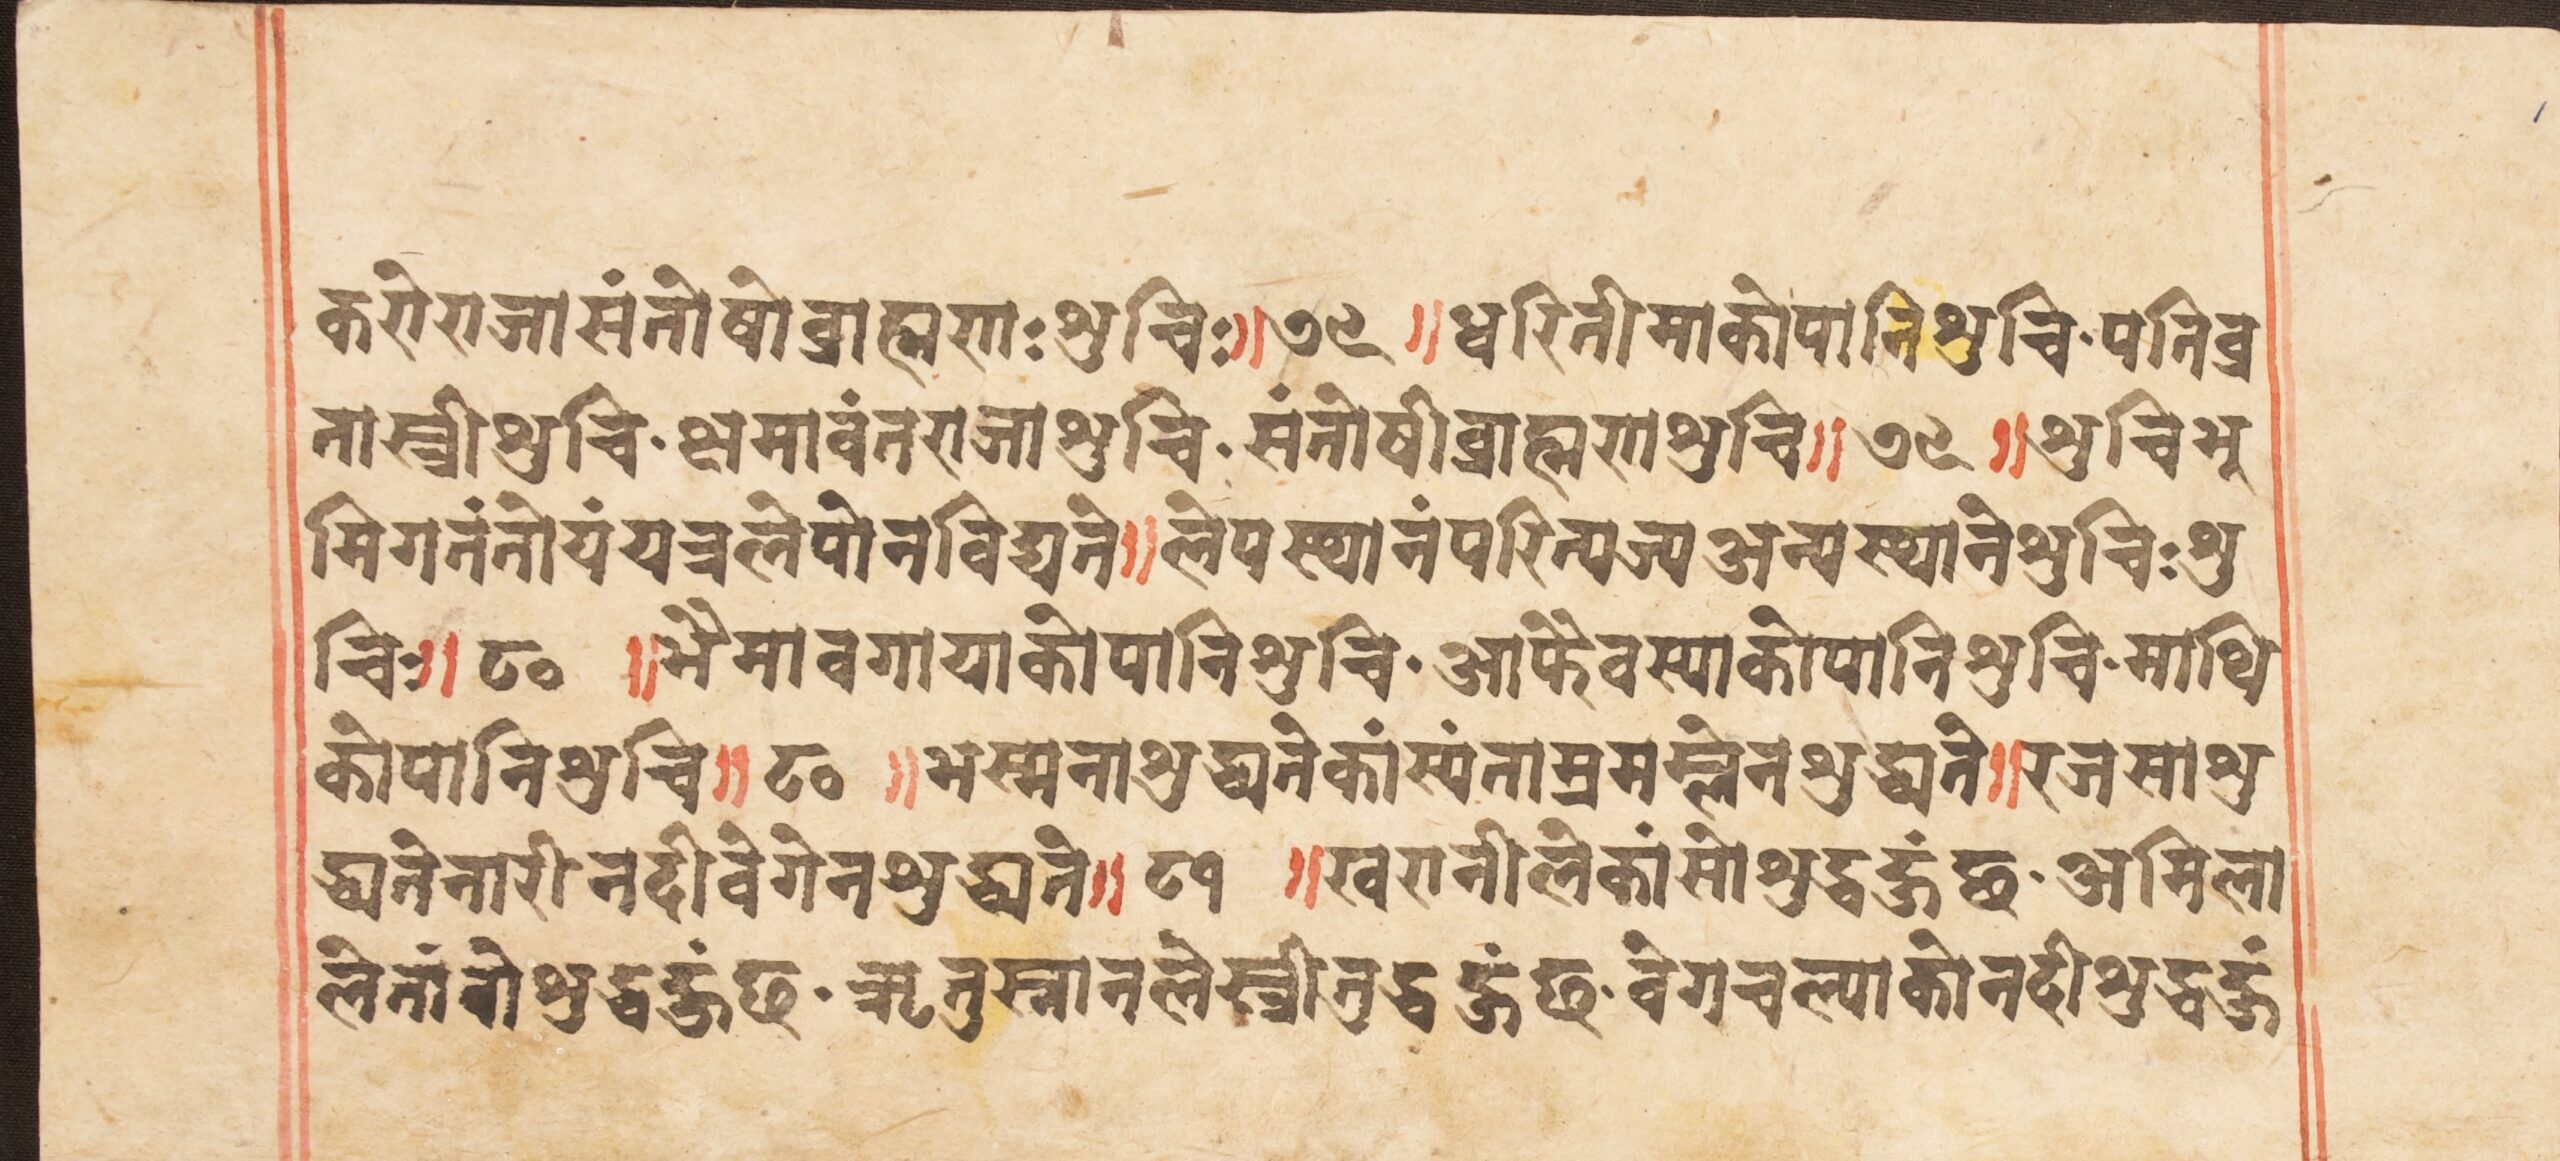 करोराजासंतोषोब्राह्मणः शुचिः॥७९॥धरितीमाकोपानिशुचि·पतिव्र
तास्त्रीशुचि·क्षमावंतराजाशुचि·संतोषीब्राह्मणशुचि॥७९॥शुचिभू
मिगतंतोयंयत्रलेपोनविद्यते॥लेपस्थानंपरित्यज्यअन्यस्थानेशुचिःशु
चिः॥८०॥भैमावगायाकोपानिशुचि·आफैवस्याकोपानिशुचि·माथि
कोपानिशुचि॥८०॥भस्मनाशुद्ध्यतेकांस्यंताम्रमम्लेनशुद्ध्यते॥रजसाशु
द्ध्यतेनारीनदीवेगेनशुद्ध्यते॥८१॥खरानीलेकांसोशुद्धहुंछ·अमिला
लेतांबोशुद्धहुंछ·ऋतुस्नानलेस्त्रीनुद्धहुंछ·वेगचल्याकोनदीशुद्धहुं